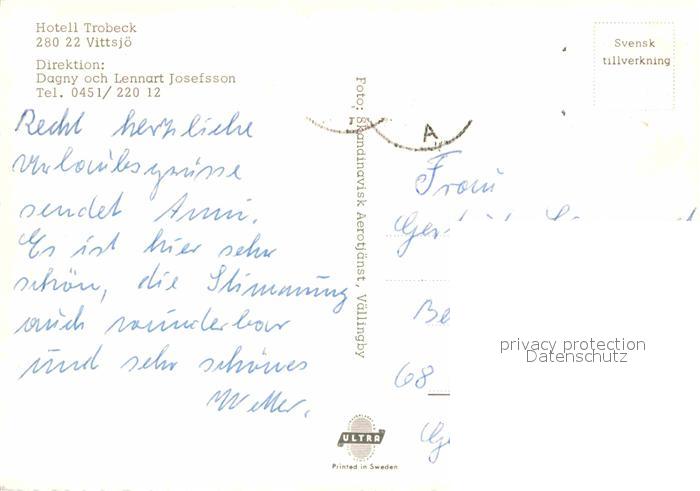 Hotell Trobeck
280 22 Vittsjö
Direktion:
Dagny och Lennart Josefsson
Tel. 0451/ 220 12
Recht herzliche
Urlaubsgrüsse
sendet Anni.
Es ist hier sehr
schön, die Stimmung
auch wunderbar
und sehr schönes
Wetter.
Foto: Skandinavisk Aerotjänst, Vällingby
Svensk
tillverkning
A
Frau
68
privacy protection
Datenschutz
ULTRA
Printed in Sweden